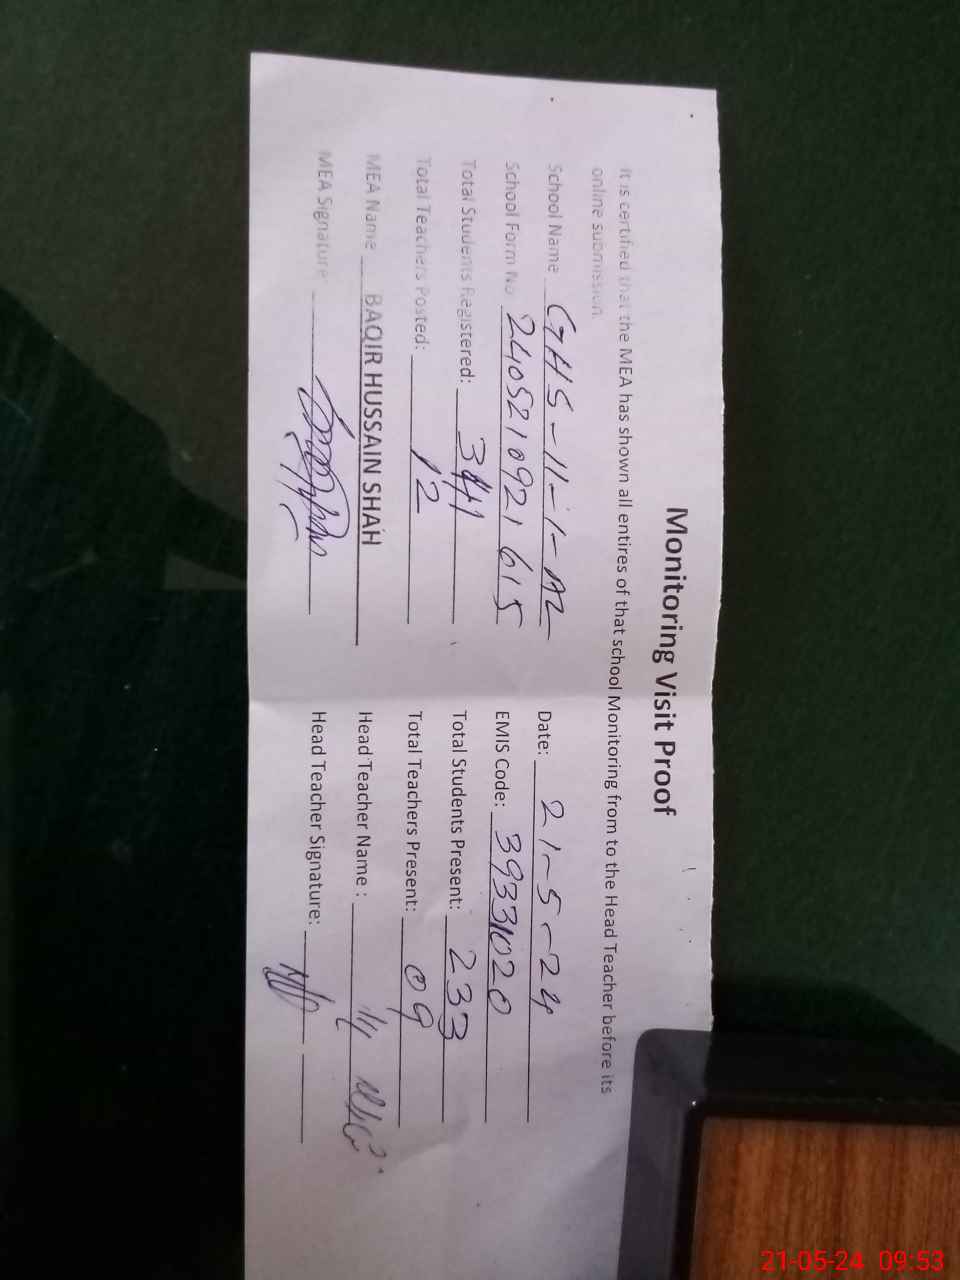 Monitoring Visit Proof
It is certified that the MEA has shown all entires of that school Monitoring from to the Head Teacher before its
online submission.
School Name GHS-11-1-AL Date: 21-5-24
School Form No 2405210921615 EMIS Code: 39331020
Total Students Registered: 341 Total Students Present: 233
Total Teachers Posted: 12 Total Teachers Present: 09
MEA Name BAQIR HUSSAIN SHAH Head Teacher Name :
MEA Signature: Head Teacher Signature:
21-05-24 09:53